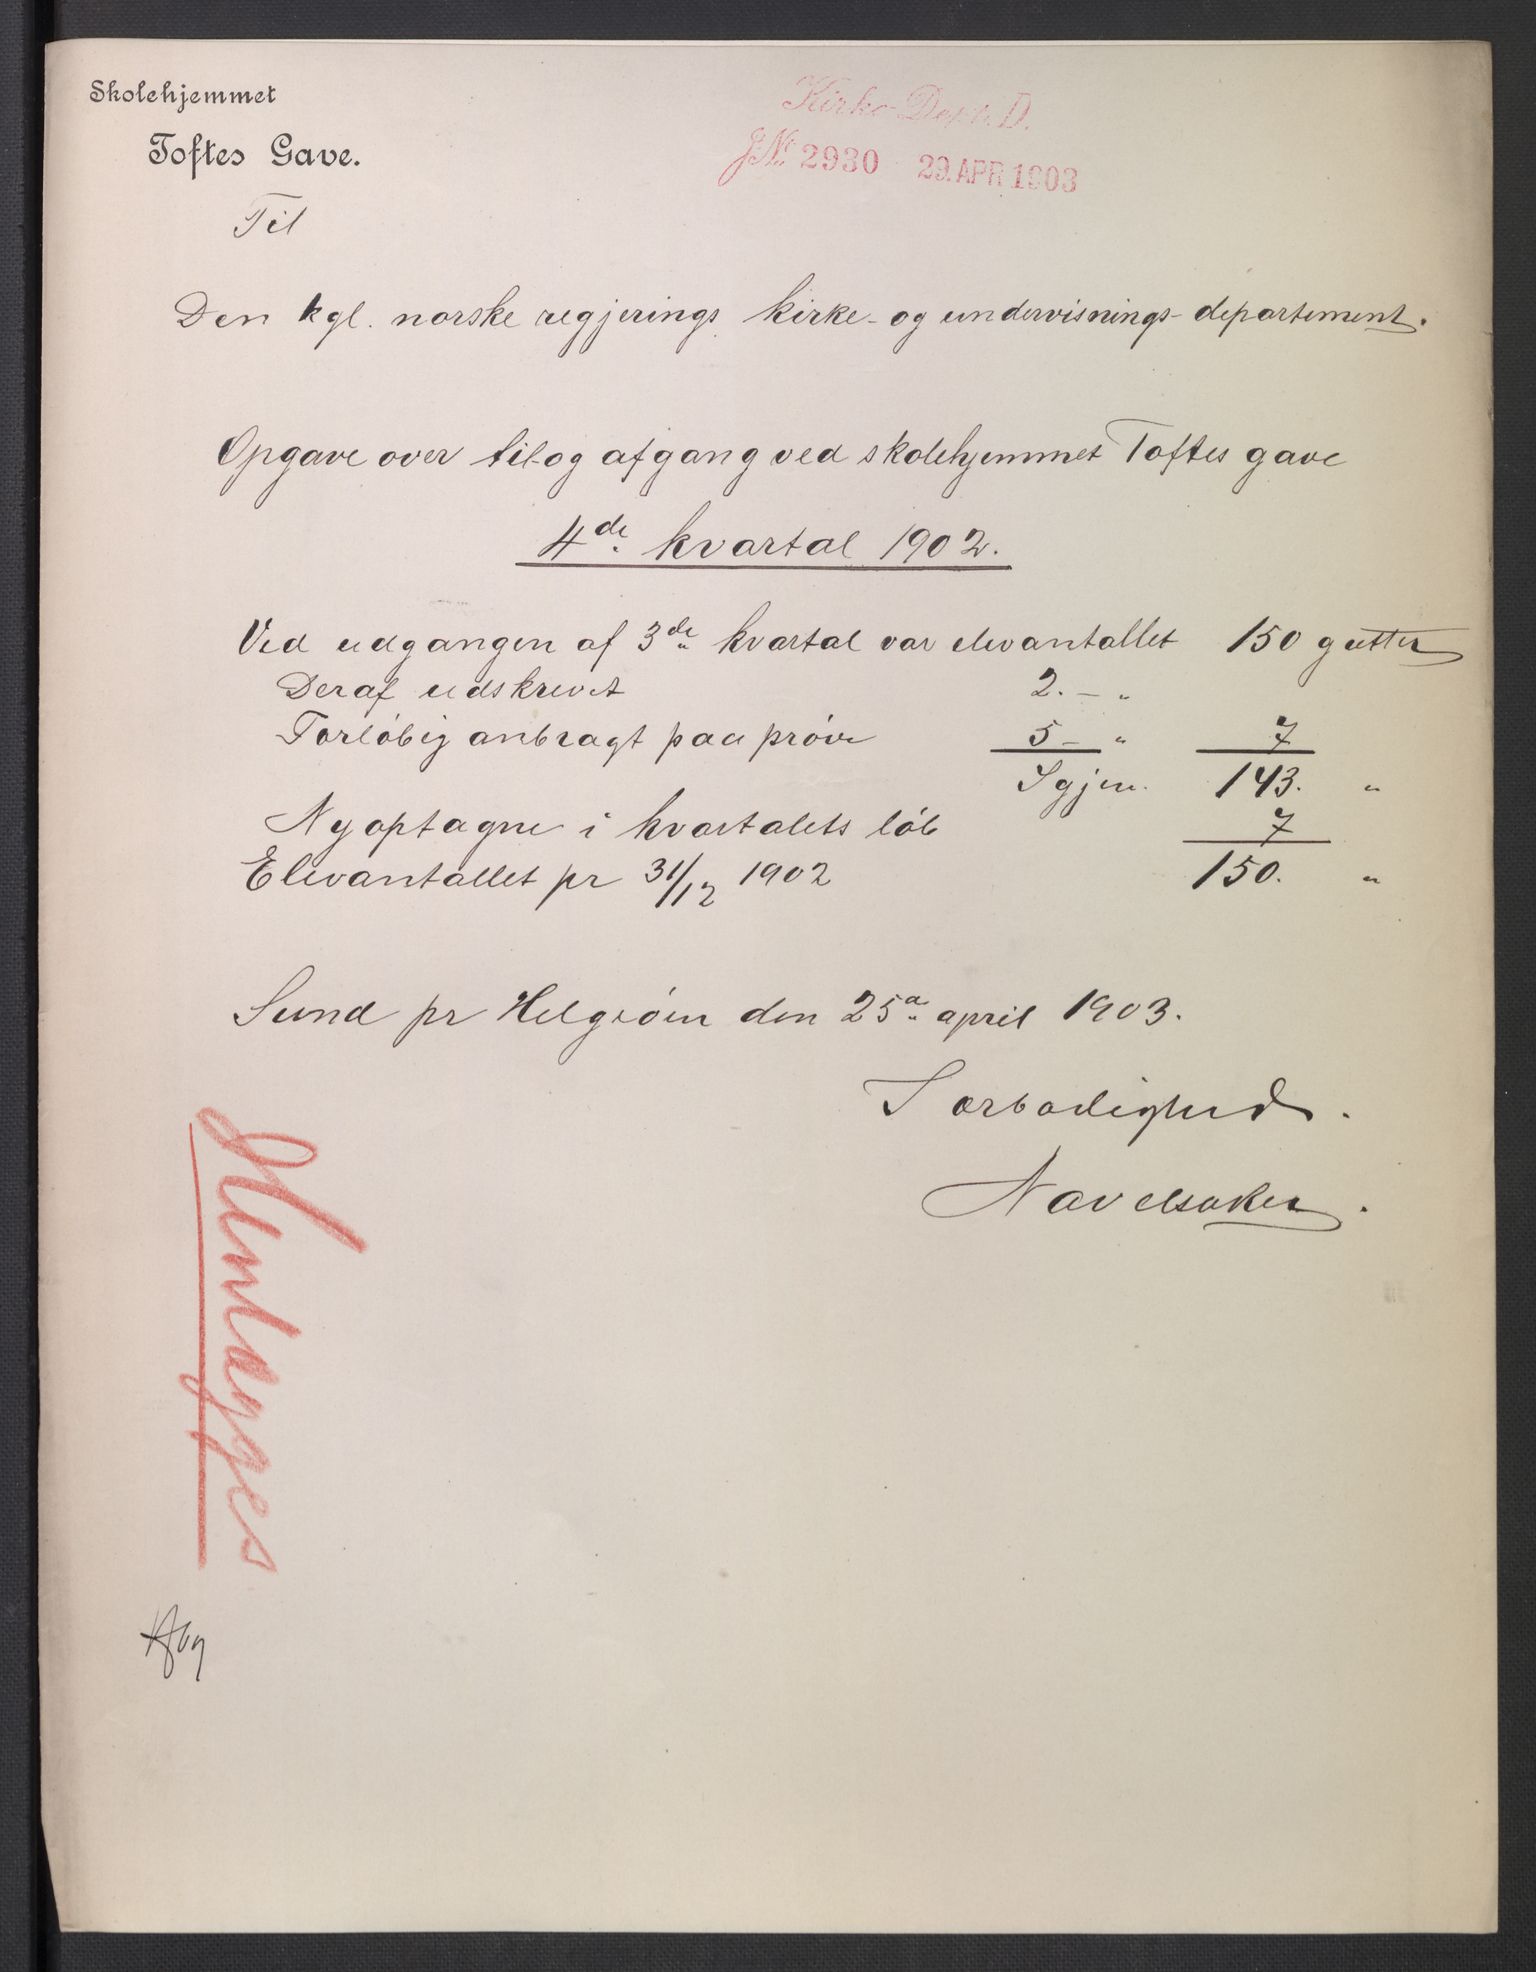 Skolehjemmet
Toftes Gave.
Kirke-Dept. D.
J№ 2930 29. APR 1903
Til
Den kgl. norske regjerings kirke- og undervisnings-departement.
Opgave over til- og afgang ved skolehjemmet Toftes gave
4de kvartal 1902.
Ved udgangen af 3de kvartal var elevantallet 150 gutter
Deraf udskrevet 2. — "
Forløbig anbragt paa prøve 5 — " 7
Igjen. 143. "
Nyoptagne i kvartalets løb 7
Elevantallet pr 31/12 1902 150. "
Sund pr Helgøen den 25de april 1903.
Ærbødighed.
Navelsaker.
Henlægges